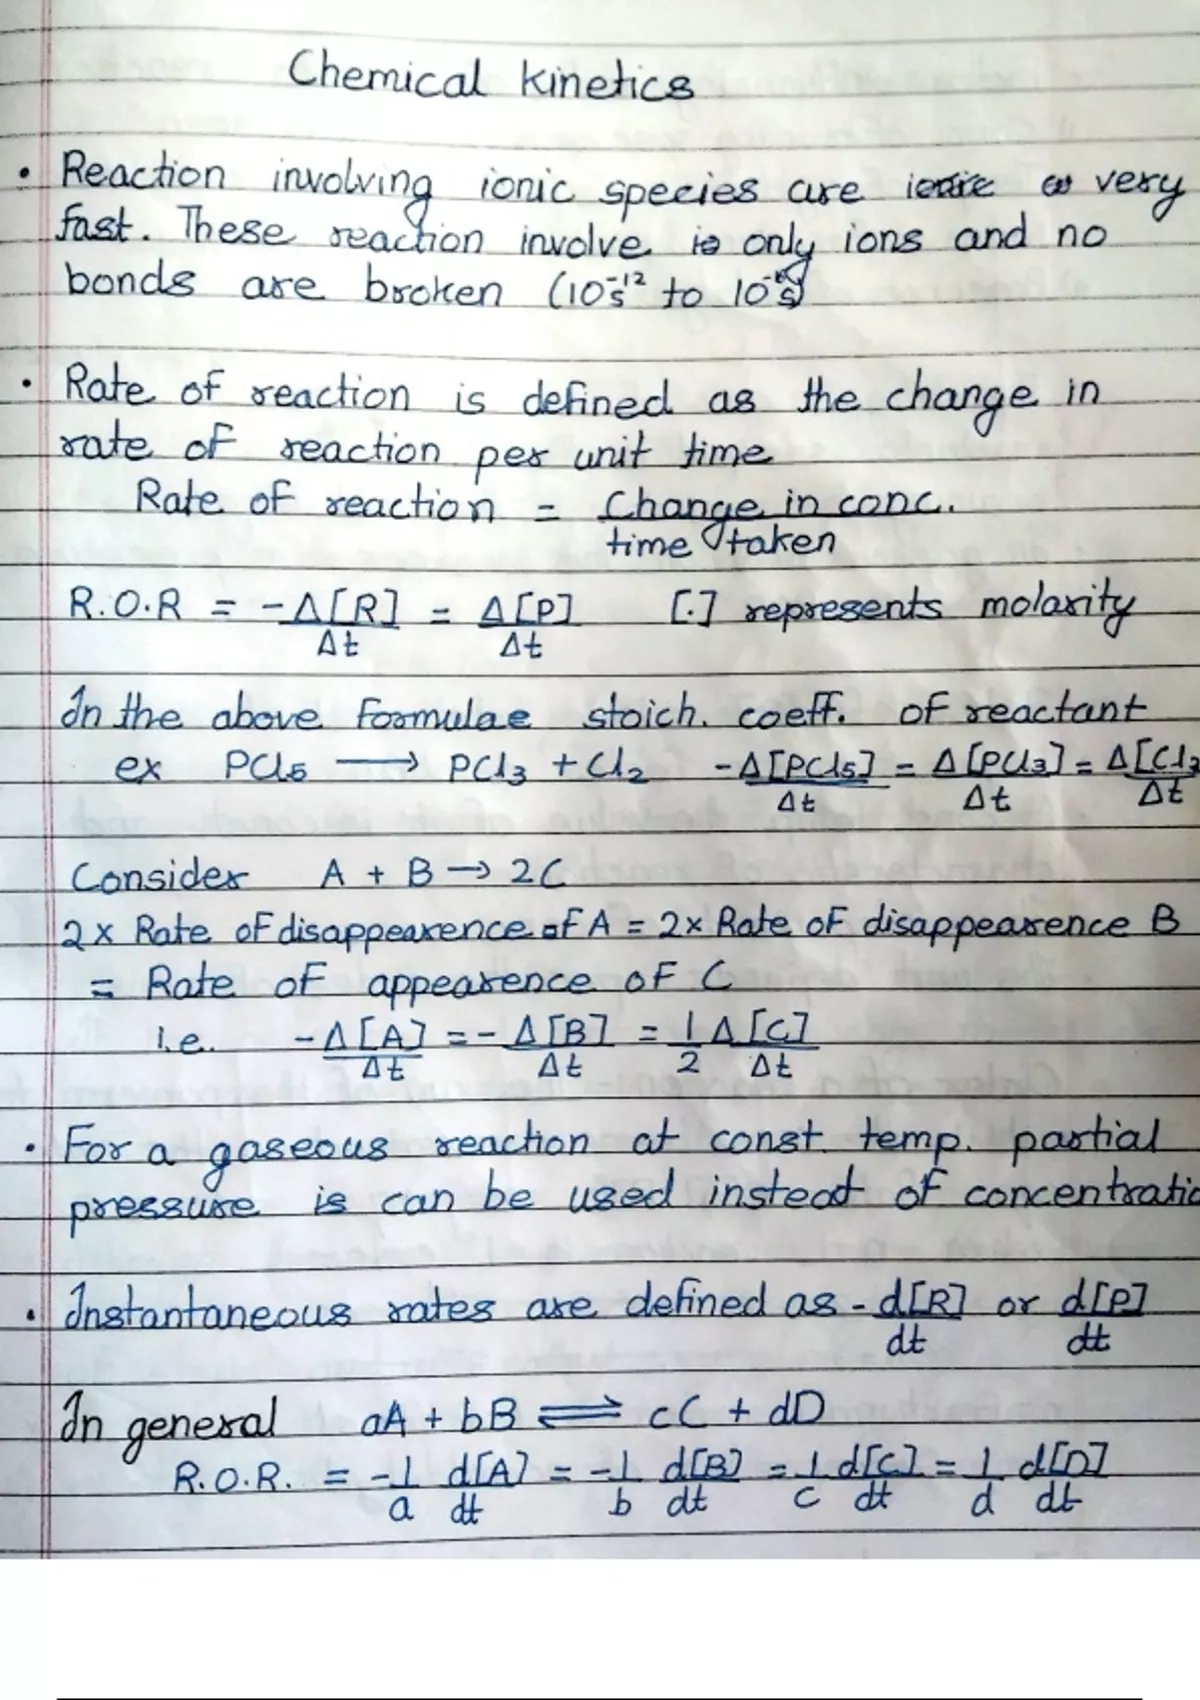 Chemical kinetics
• Reaction involving ionic species are very
fast. These reaction involve only ions and no
bonds are broken (10⁻¹² s to 10 s)
• Rate of reaction is defined as the change in
rate of reaction per unit time
Rate of reaction = Change in conc.
time taken
R.O.R = -Δ[R] = Δ[P] [.] represents molarity
Δt Δt
In the above formulae stoich. coeff. of reactant
ex PCl₅ ⟶ PCl₃ + Cl₂ -Δ[PCl₅] = Δ[PCl₃] = Δ[Cl₂
Δt Δt Δt
Consider A + B → 2C
2× Rate of disappearence of A = 2× Rate of disappearence B
= Rate of appearence of C
i.e. -Δ[A] = - Δ[B] = 1 Δ[C]
Δt Δt 2 Δt
• For a gaseous reaction at const. temp. partial
pressure is can be used instead of concentratio
• Instantaneous rates are defined as - d[R] or d[P]
dt dt
In general aA + bB ⇌ cC + dD
R.O.R. = -1 d[A] = -1 d[B] = 1 d[C] = 1 d[D]
a dt b dt c dt d dt